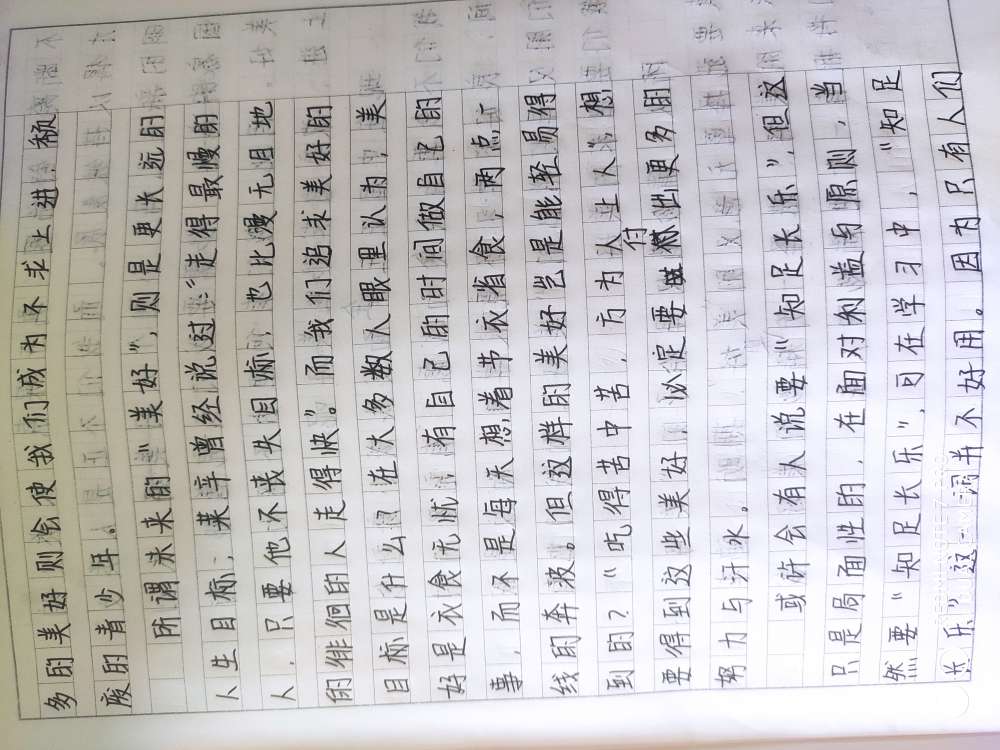 多的美好则会使我们成为不求上进，颓
废的青少年。
所谓未来的"美好"，则是更长远的
人生目标，莱辛曾经说过："走得最慢的
人，只要他不丧失目标，也比漫无目地
的徘徊的人走得快"。而我们追求美好的
目标是什么？在大多数人眼里认为，美
好是衣食无忧，有自己的时间做自己的
事，而不是每天想着节衣省食，两点一
线的奔波。但这样的美好岂是能轻易得
到的？"吃得苦中苦，方为人上人"，想
要得到这些美好，必定要付出更多的
努力与汗水。
或许会有人说要"知足长乐"，但这
只是局面性的，在面对利益与原则，当
然要"知足长乐"，可在学习中，"知足
长乐"这一词并不好用。因为只有人们